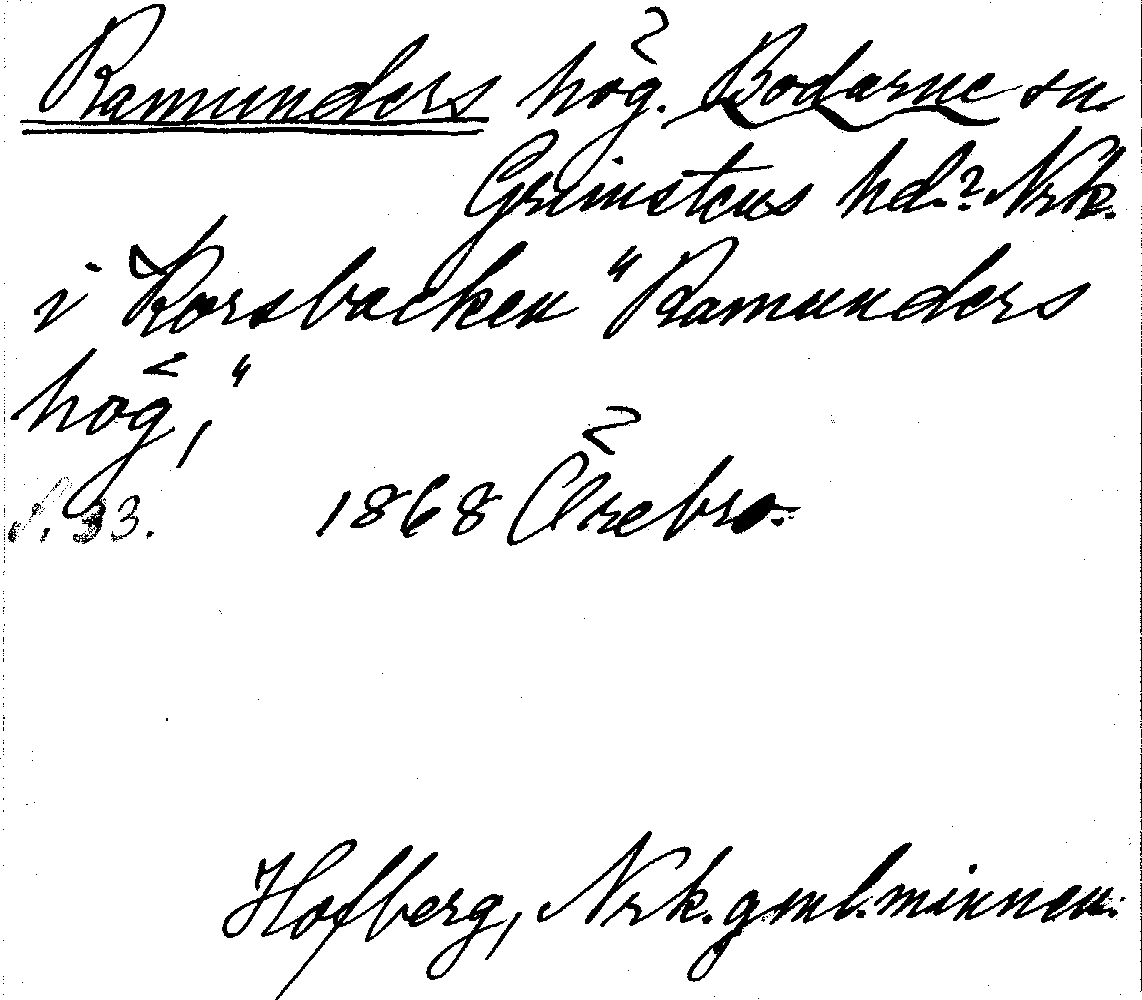 Ramunders hög. Bodarne sn.
Grimstens hd.? Nrk.
i Korsbacken "Ramunders
hög,"
s. 33. 1868 Örebro.
Hofberg, Nrk. gml. minnen.